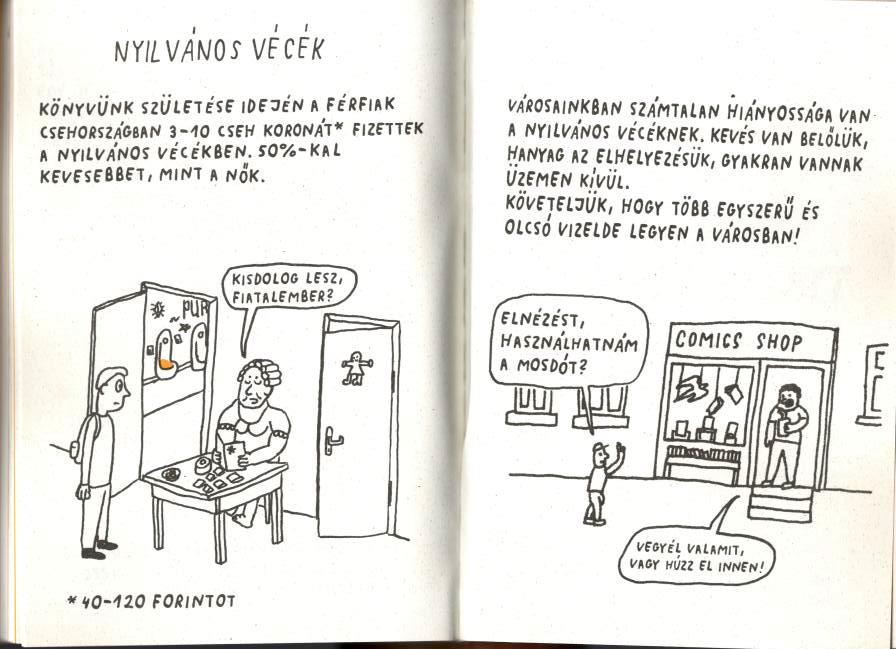 NYILVÁNOS VÉCÉK
KÖNYVÜNK SZÜLETÉSE IDEJÉN A FÉRFIAK
CSEHORSZÁGBAN 3-10 CSEH KORONÁT* FIZETTEK
A NYILVÁNOS VÉCÉKBEN. 50%-KAL
KEVESEBBET, MINT A NŐK.
KISDOLOG LESZ,
FIATALEMBER?
PUR
* 40-120 FORINTOT
VÁROSAINKBAN SZÁMTALAN HIÁNYOSSÁGA VAN
A NYILVÁNOS VÉCÉKNEK. KEVÉS VAN BELŐLÜK,
HANYAG AZ ELHELYEZÉSÜK, GYAKRAN VANNAK
ÜZEMEN KÍVÜL.
KÖVETELJÜK, HOGY TÖBB EGYSZERŰ ÉS
OLCSÓ VIZELDE LEGYEN A VÁROSBAN!
ELNÉZÉST,
HASZNÁLHATNÁM
A MOSDÓT?
COMICS SHOP
VEGYÉL VALAMIT,
VAGY HÚZZ EL INNEN!